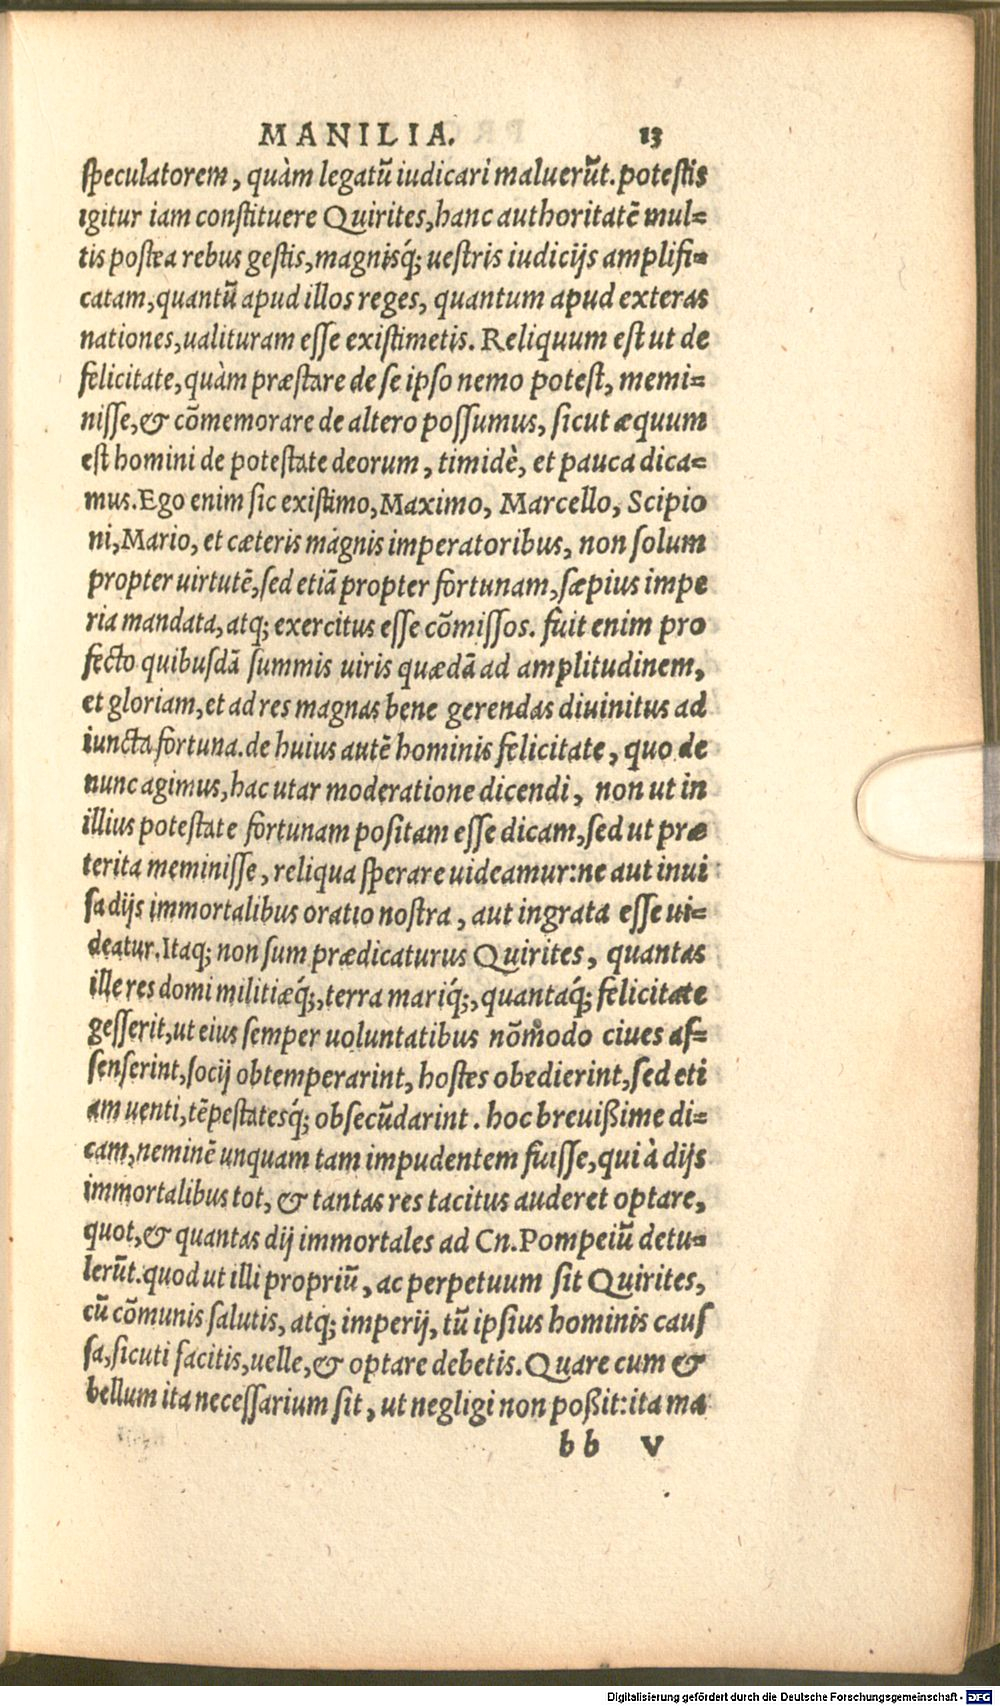 MANILIA. 13
speculatorem, quàm legatū iudicari maluerūt. potestis
igitur iam constituere Quirites, hanc authoritatē mul=
tis postea rebus gestis, magnisq́; uestris iudicijs amplifi=
catam, quantū apud illos reges, quantum apud exteras
nationes, ualituram esse existimetis. Reliquum est ut de
felicitate, quàm præstare de se ipso nemo potest, memi=
nisse, & cōmemorare de altero possumus, sicut æquum
est homini de potestate deorum, timidè, et pauca dica=
mus. Ego enim sic existimo, Maximo, Marcello, Scipio
ni, Mario, et cæteris magnis imperatoribus, non solum
propter uirtutē, sed etiā propter fortunam, sæpius impe
ria mandata, atq; exercitus esse cōmissos. fuit enim pro
fecto quibusdā summis uiris quædā ad amplitudinem,
et gloriam, et ad res magnas bene gerendas diuinitus ad
iuncta fortuna. de huius autē hominis felicitate, quo de
nunc agimus, hac utar moderatione dicendi, non ut in
illius potestate fortunam positam esse dicam, sed ut præ
terita meminisse, reliqua sperare uideamur: ne aut inui
sa dijs immortalibus oratio nostra, aut ingrata esse ui=
deatur. Itaq; non sum prædicaturus Quirites, quantas
ille res domi militiæq́;, terra mariq́;, quantaq́; felicitate
gesserit, ut eius semper uoluntatibus nōmodo ciues as=
senserint, socij obtemperarint, hostes obedierint, sed eti
am uenti, tēpestatesq́; obsecūdarint. hoc breuißime di=
cam, neminē unquam tam impudentem fuisse, qui à dijs
immortalibus tot, & tantas res tacitus auderet optare,
quot, & quantas dij immortales ad Cn. Pompeiū detu=
lerūt. quod ut illi propriū, ac perpetuum sit Quirites,
cū cōmunis salutis, atq; imperij, tū ipsius hominis caus
sa, sicuti facitis, uelle, & optare debetis. Quare cum &
bellum ita necessarium sit, ut negligi non poßit: ita ma
bb v
Digitalisierung gefördert durch die Deutsche Forschungsgemeinschaft - DFG